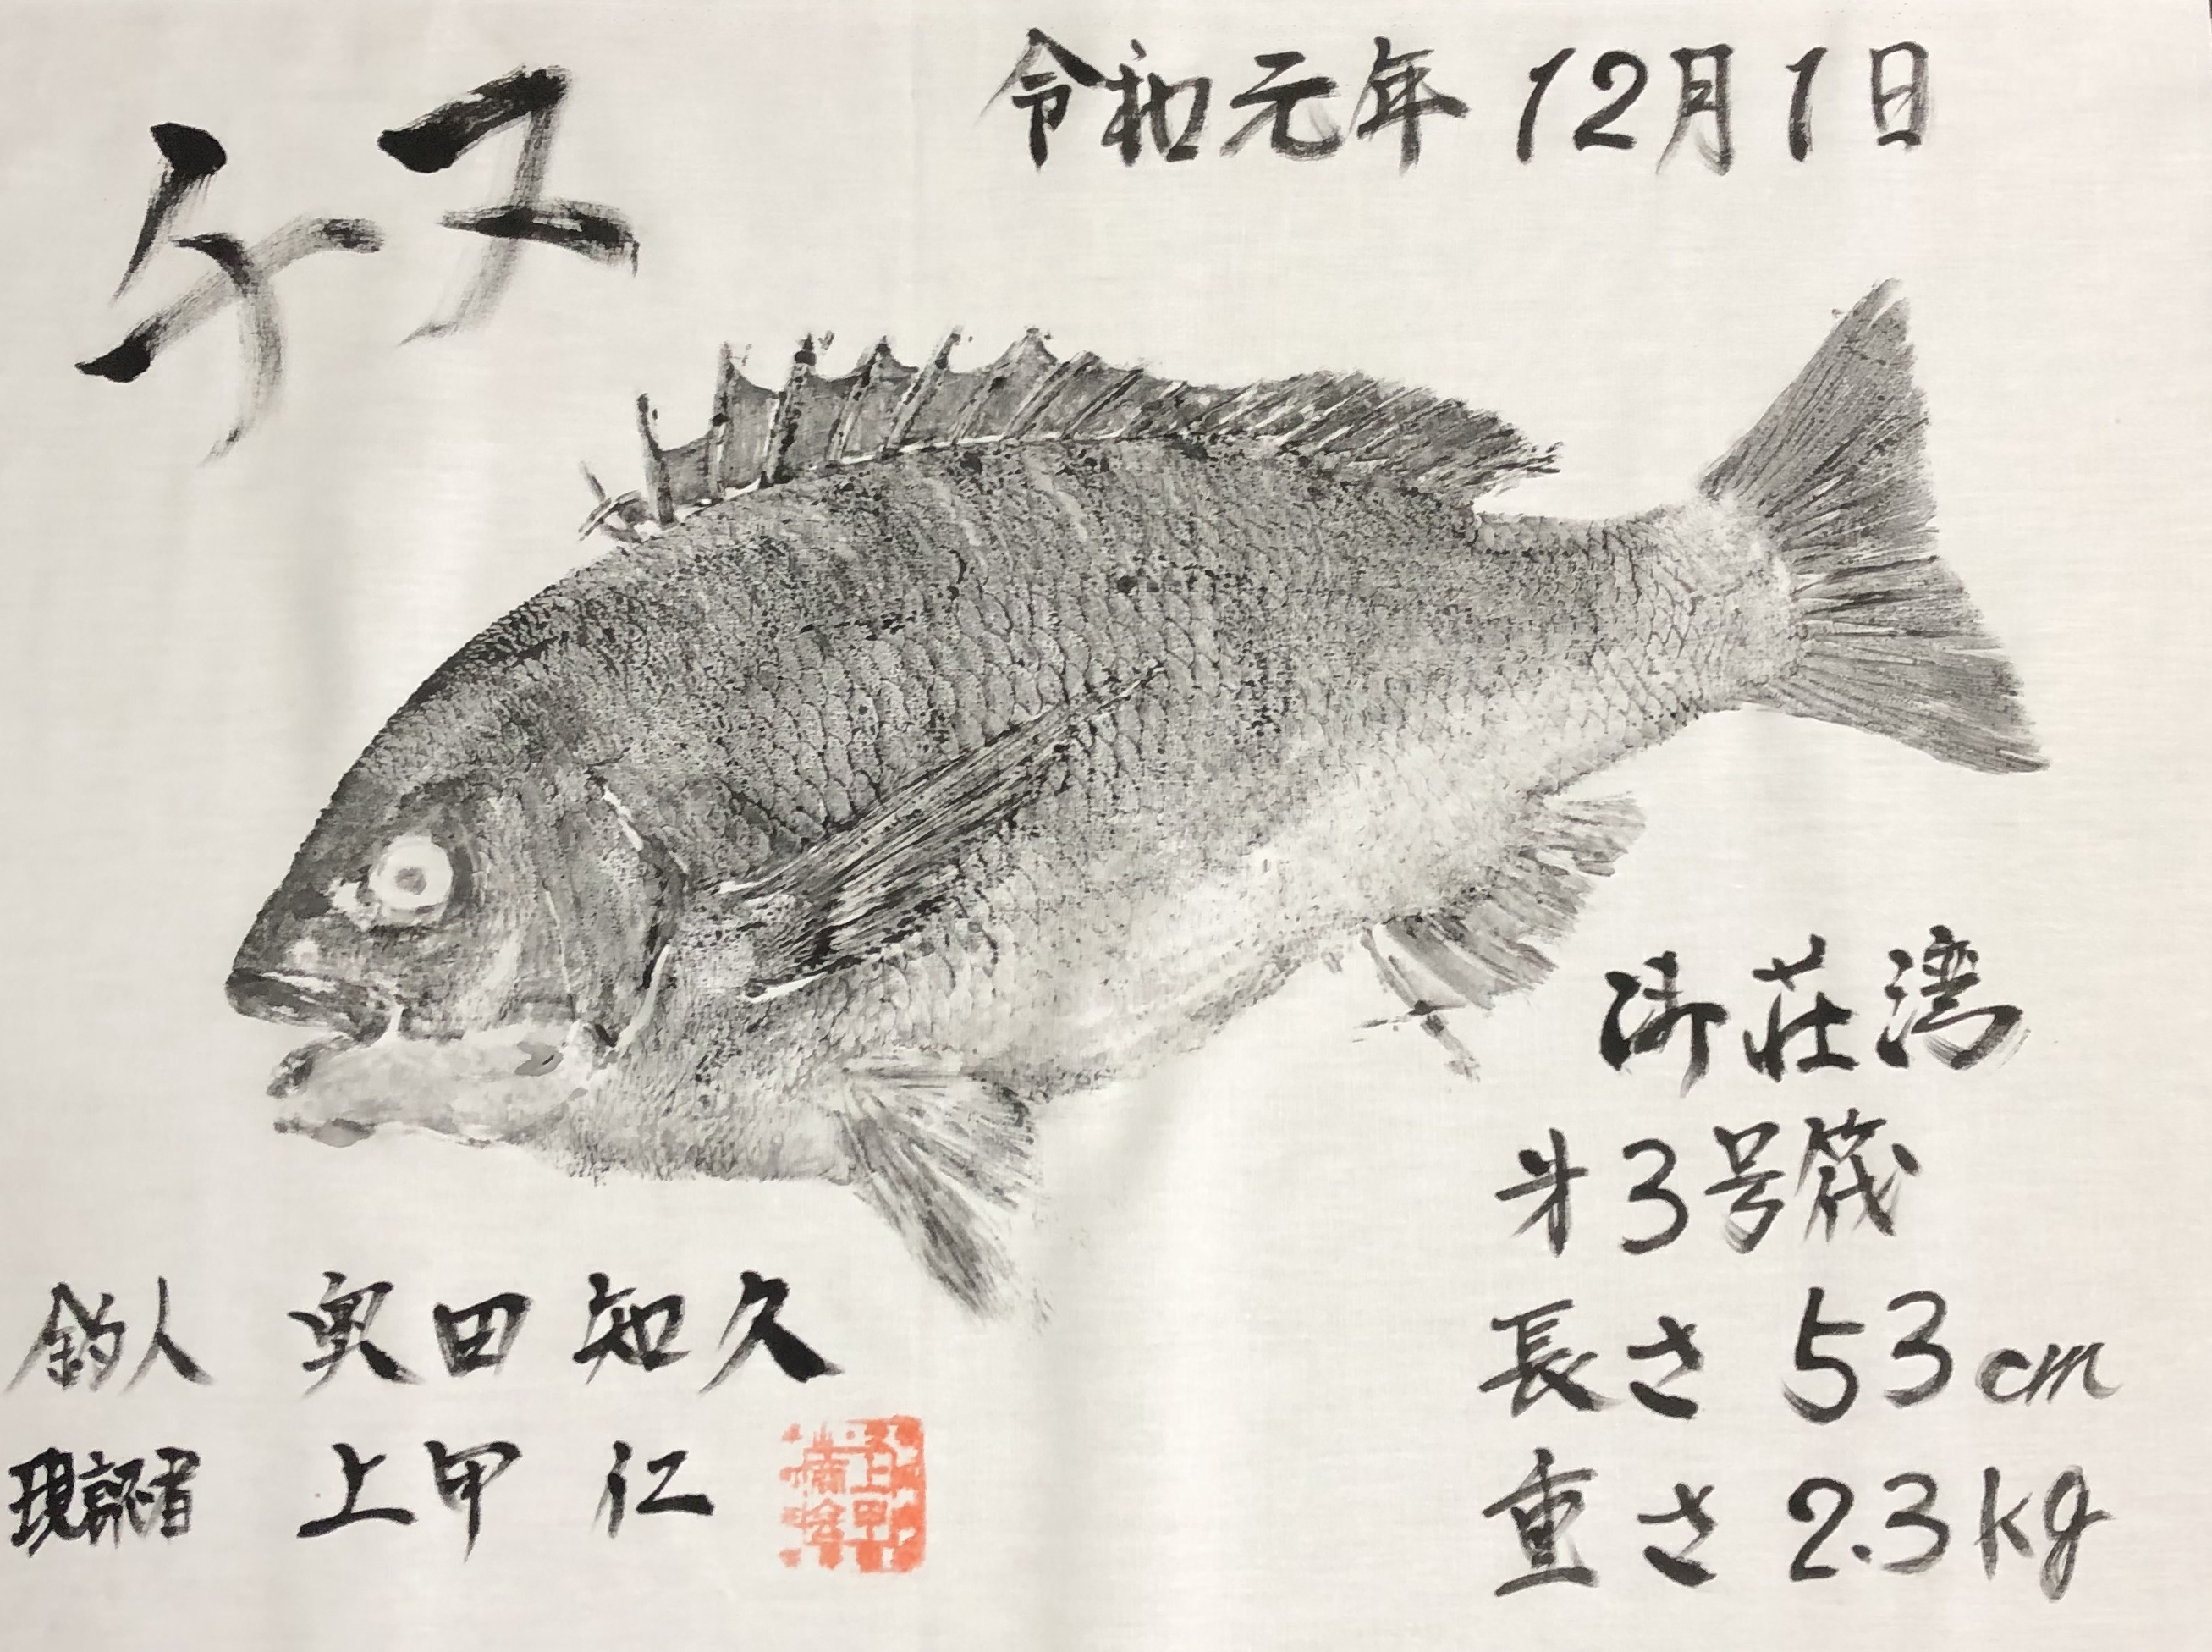 チヌ
令和元年 12月1日
御荘湾
3号筏
長さ 53cm
重さ 2.3kg
釣人 奥田知久
現認者 上甲 仁